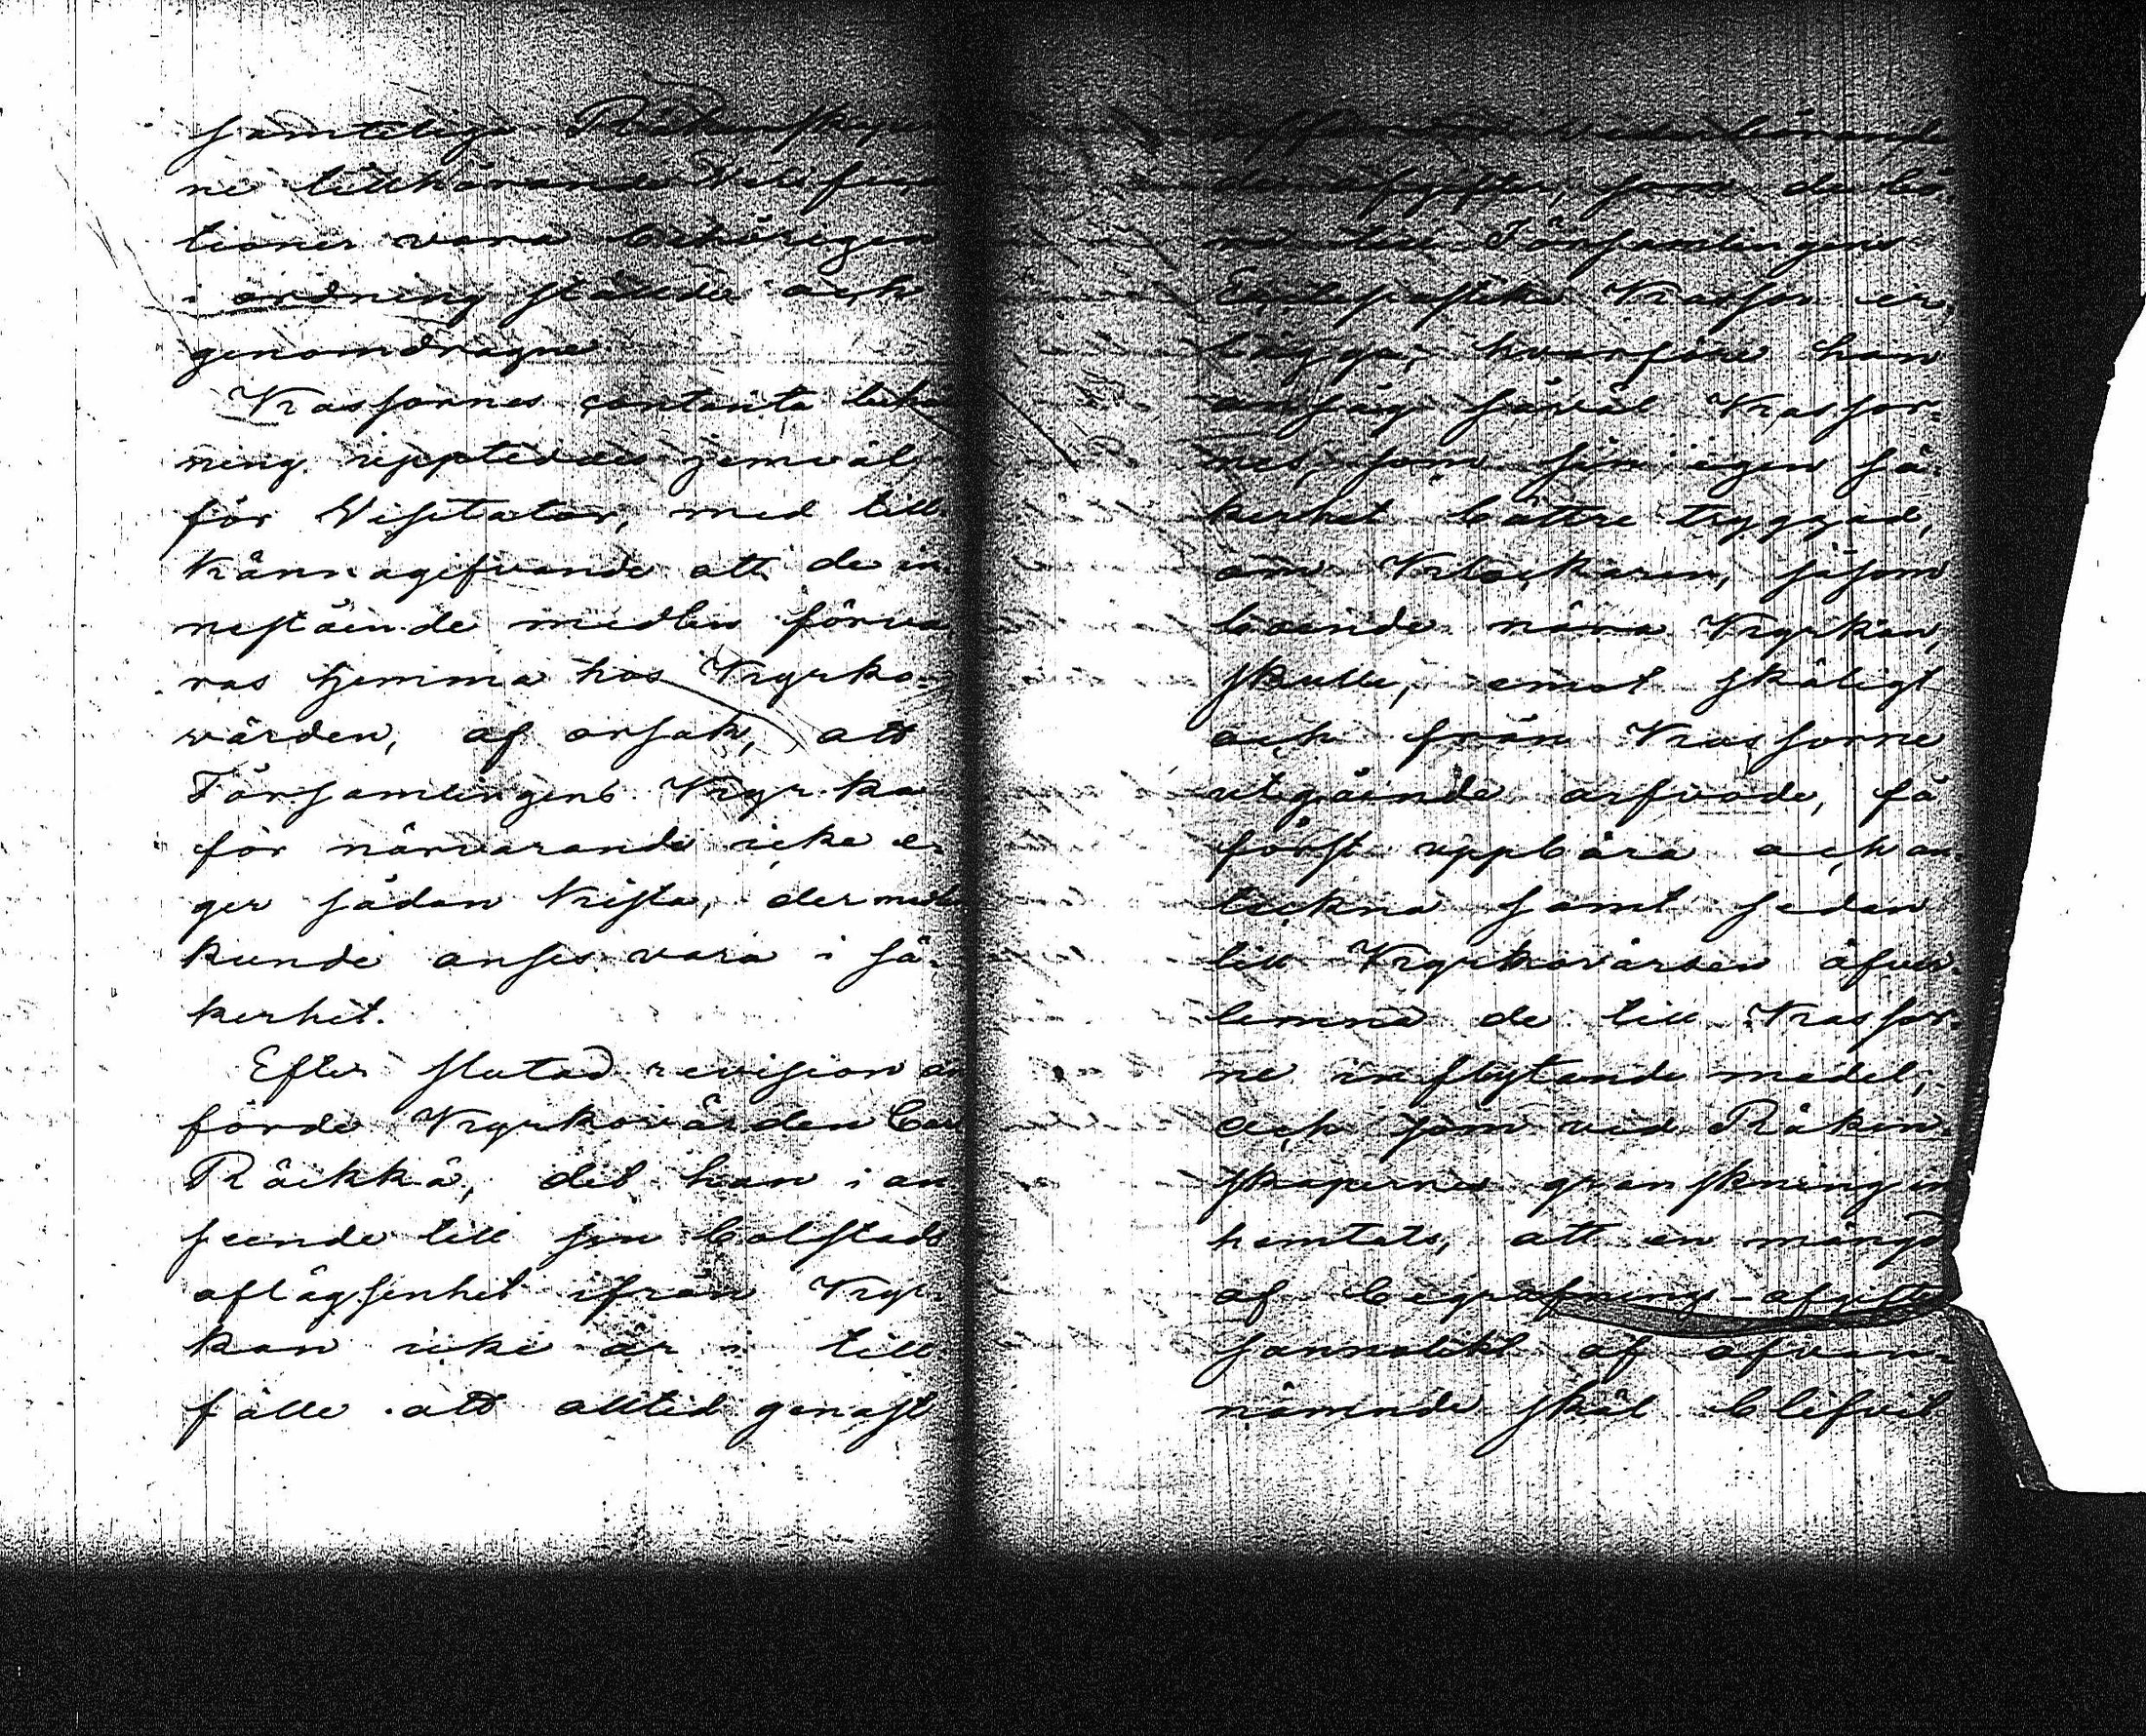 samtelige Räkenskaper
ne tillhörande Verifica
tioner vara behörigen
i ordning stälde och
genomdragne
Kassornes contanta beho
ning uppteddes jemväl
för Visitator, med till
kännagifvande att de in
nestående medlen förva
ras hemma hos Kyrko-
värden, af orsak, att
Församlingens Kyrka
för närvarande icke e-
ger sådan kista, der med
kunde anses vara i sä-
kerhet.
Efter slutad revision an
förde Kyrkovärden Carl
Räikkä, det han i an
seende till sin bolstads
aflägsenhet ifrån Kyr-
kan icke är i till
fälle att alltid genast
af vederbörande
de afgifter, som de bö-
ra till Församlingens
Ecclesiastike Kassor er-
lägga; hvarföre han
ansåg såväl Kassor-
nes, som sin egen sä-
kerhet bättre tryggad,
om Klockaren, såsom
boende nära Kyrkan,
skulle, emot skäligt
och från Kassorne
utgående arfvode, få
först uppbära och an-
teckna samt sedan
till Kyrkovärden öfver-
lemna de till Kassor-
ne inflytande medel;
och som vid Räken-
skapernes granskning in
hemtats, att en mängd
af begrafnings-afgifter
sannolikt af ofvan-
nämnde skäl blifvit